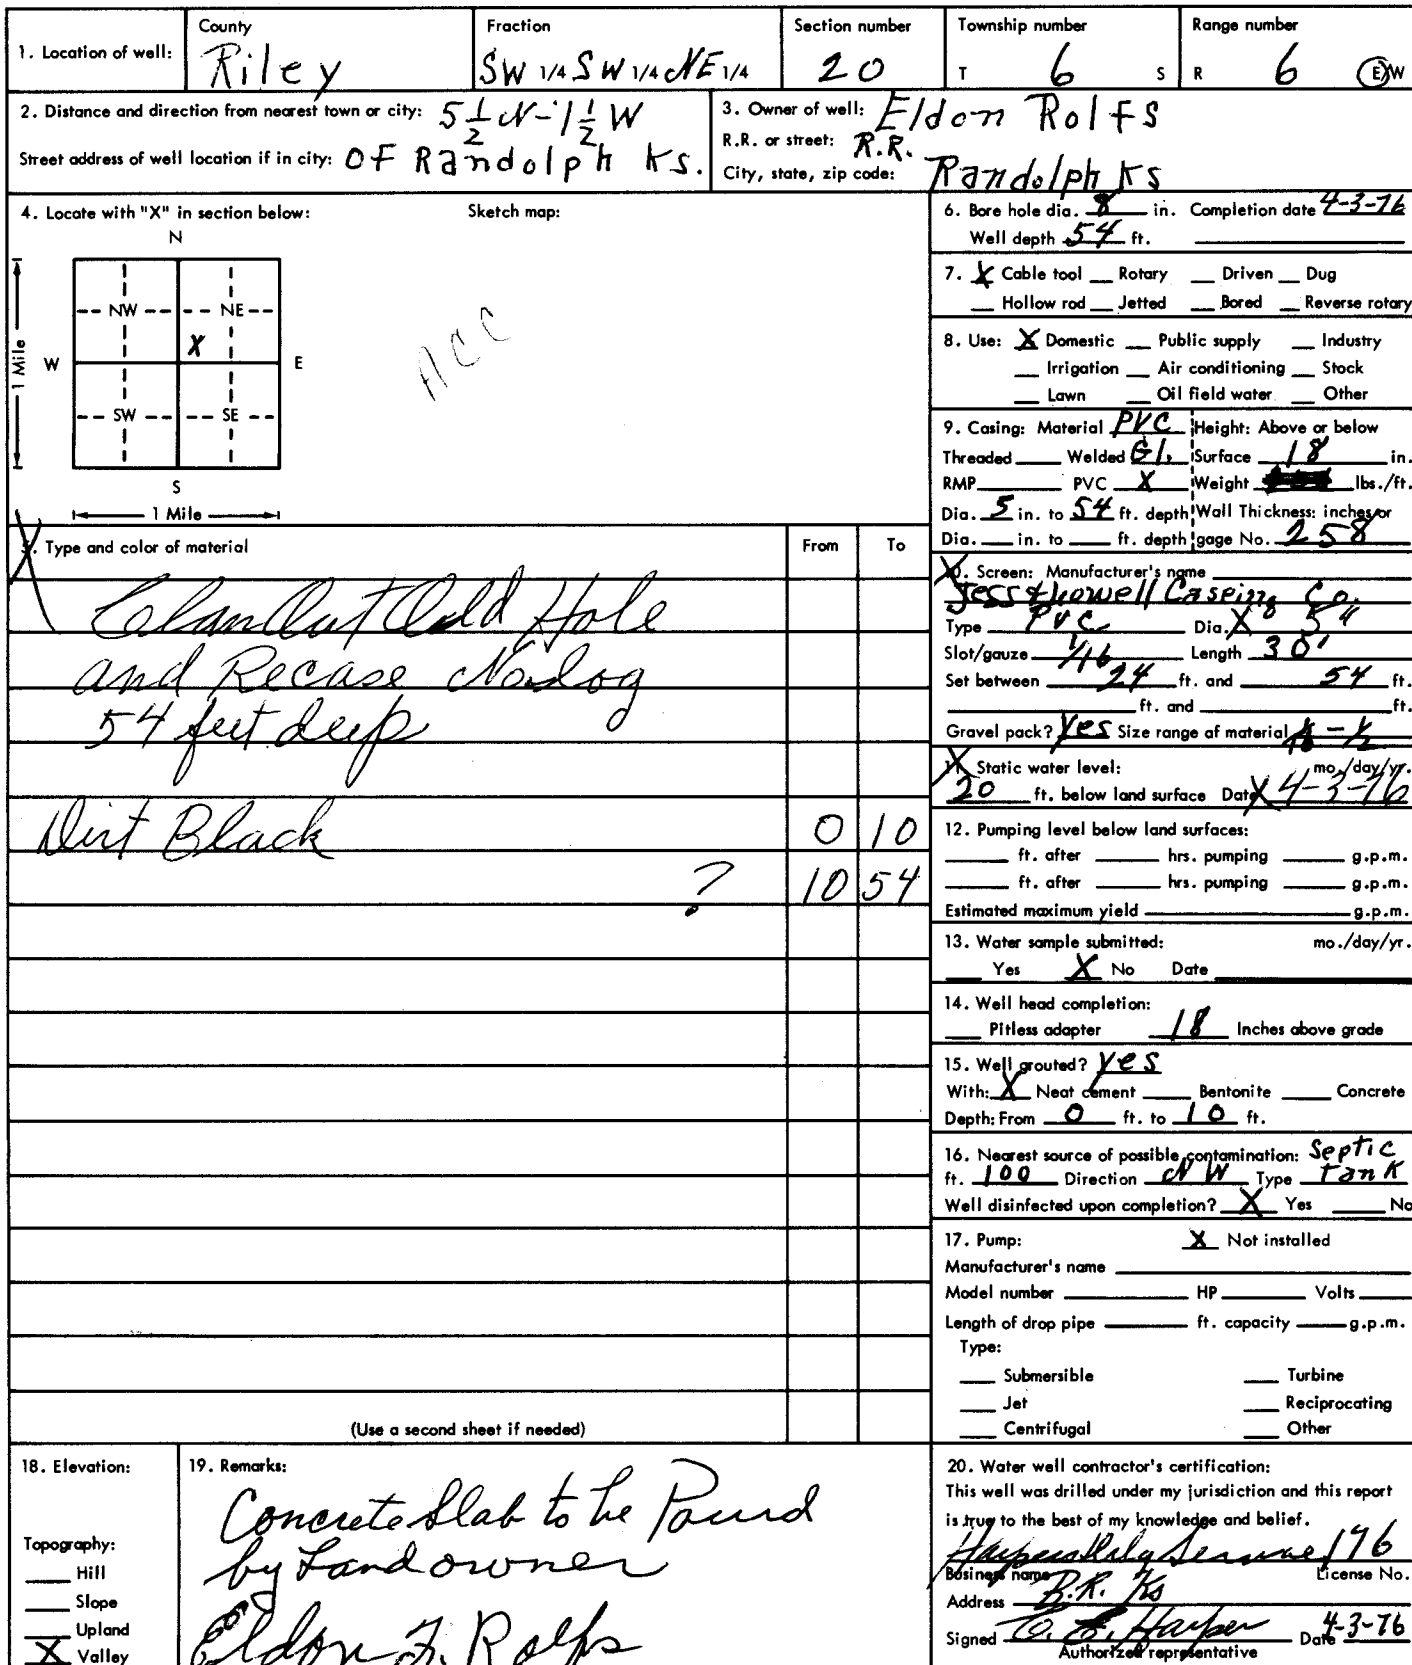 1. Location of well: County Riley Fraction SW 1/4 SW 1/4 NE 1/4 Section number 20 Township number T 6 S Range number R 6 E/W
2. Distance and direction from nearest town or city: 5 1/2 N - 1 1/2 W
Street address of well location if in city: OF Randolph Ks.
3. Owner of well: Eldon Rolfs
R.R. or street: R.R.
City, state, zip code: Randolph Ks
4. Locate with "X" in section below: Sketch map:
N
NW NE
X
W E
1 Mile
SW SE
S
1 Mile
ACC
5. Type and color of material From To
Clean Out Old Hole
and Recase No log
54 feet deep
Dirt Black 0 10
? 10 54
(Use a second sheet if needed)
6. Bore hole dia. 8 in. Completion date 4-3-76
Well depth 54 ft.
7. X Cable tool Rotary Driven Dug
Hollow rod Jetted Bored Reverse rotary
8. Use: X Domestic Public supply Industry
Irrigation Air conditioning Stock
Lawn Oil field water Other
9. Casing: Material PVC Height: Above or below
Threaded Welded Gl. Surface 18 in.
RMP PVC X Weight lbs./ft.
Dia. 5 in. to 54 ft. depth Wall Thickness: inches or
Dia. in. to ft. depth gage No. 258
10. Screen: Manufacturer's name
Jess & Lowell Caseing Co.
Type PVC Dia. X 5"
Slot/gauze 1/16 Length 30'
Set between 24 ft. and 54 ft.
ft. and ft.
Gravel pack? Yes Size range of material - 1/2
11. Static water level: mo./day/yr.
20 ft. below land surface Date X 4-3-76
12. Pumping level below land surfaces:
ft. after hrs. pumping g.p.m.
ft. after hrs. pumping g.p.m.
Estimated maximum yield g.p.m.
13. Water sample submitted: mo./day/yr.
Yes X No Date
14. Well head completion:
Pitless adapter 18 Inches above grade
15. Well grouted? yes
With: X Neat cement Bentonite Concrete
Depth: From 0 ft. to 10 ft.
16. Nearest source of possible contamination: Septic
ft. 100 Direction NW Type Tank
Well disinfected upon completion? X Yes No
17. Pump: X Not installed
Manufacturer's name
Model number HP Volts
Length of drop pipe ft. capacity g.p.m.
Type:
Submersible Turbine
Jet Reciprocating
Centrifugal Other
18. Elevation:
Topography:
Hill
Slope
Upland
X Valley
19. Remarks:
Concrete Slab to be Pourd
by Landowner
Eldon F. Rolfs
20. Water well contractor's certification:
This well was drilled under my jurisdiction and this report
is true to the best of my knowledge and belief.
Harpers Service 196
Business name License No.
Address R.R. Ks
Signed C. E. Harper Date 4-3-76
Authorized representative